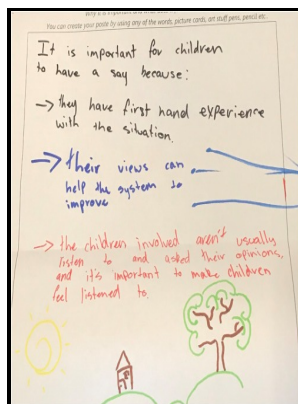 You can create your poster by using any of the words, picture cards, art stuff pens, pencil etc..
It is important for children
to have a say because:
→ they have first hand experience
with the situation.
→ their views can
help the system to
improve
→ the children involved aren't usually
listen to and asked their opinions,
and it's important to make children
feel listened to.